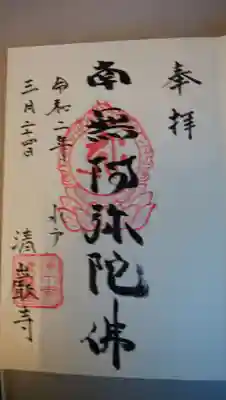 奉拝
南無阿弥陀佛
令和二年
三月二十四日
水戸
清巌寺